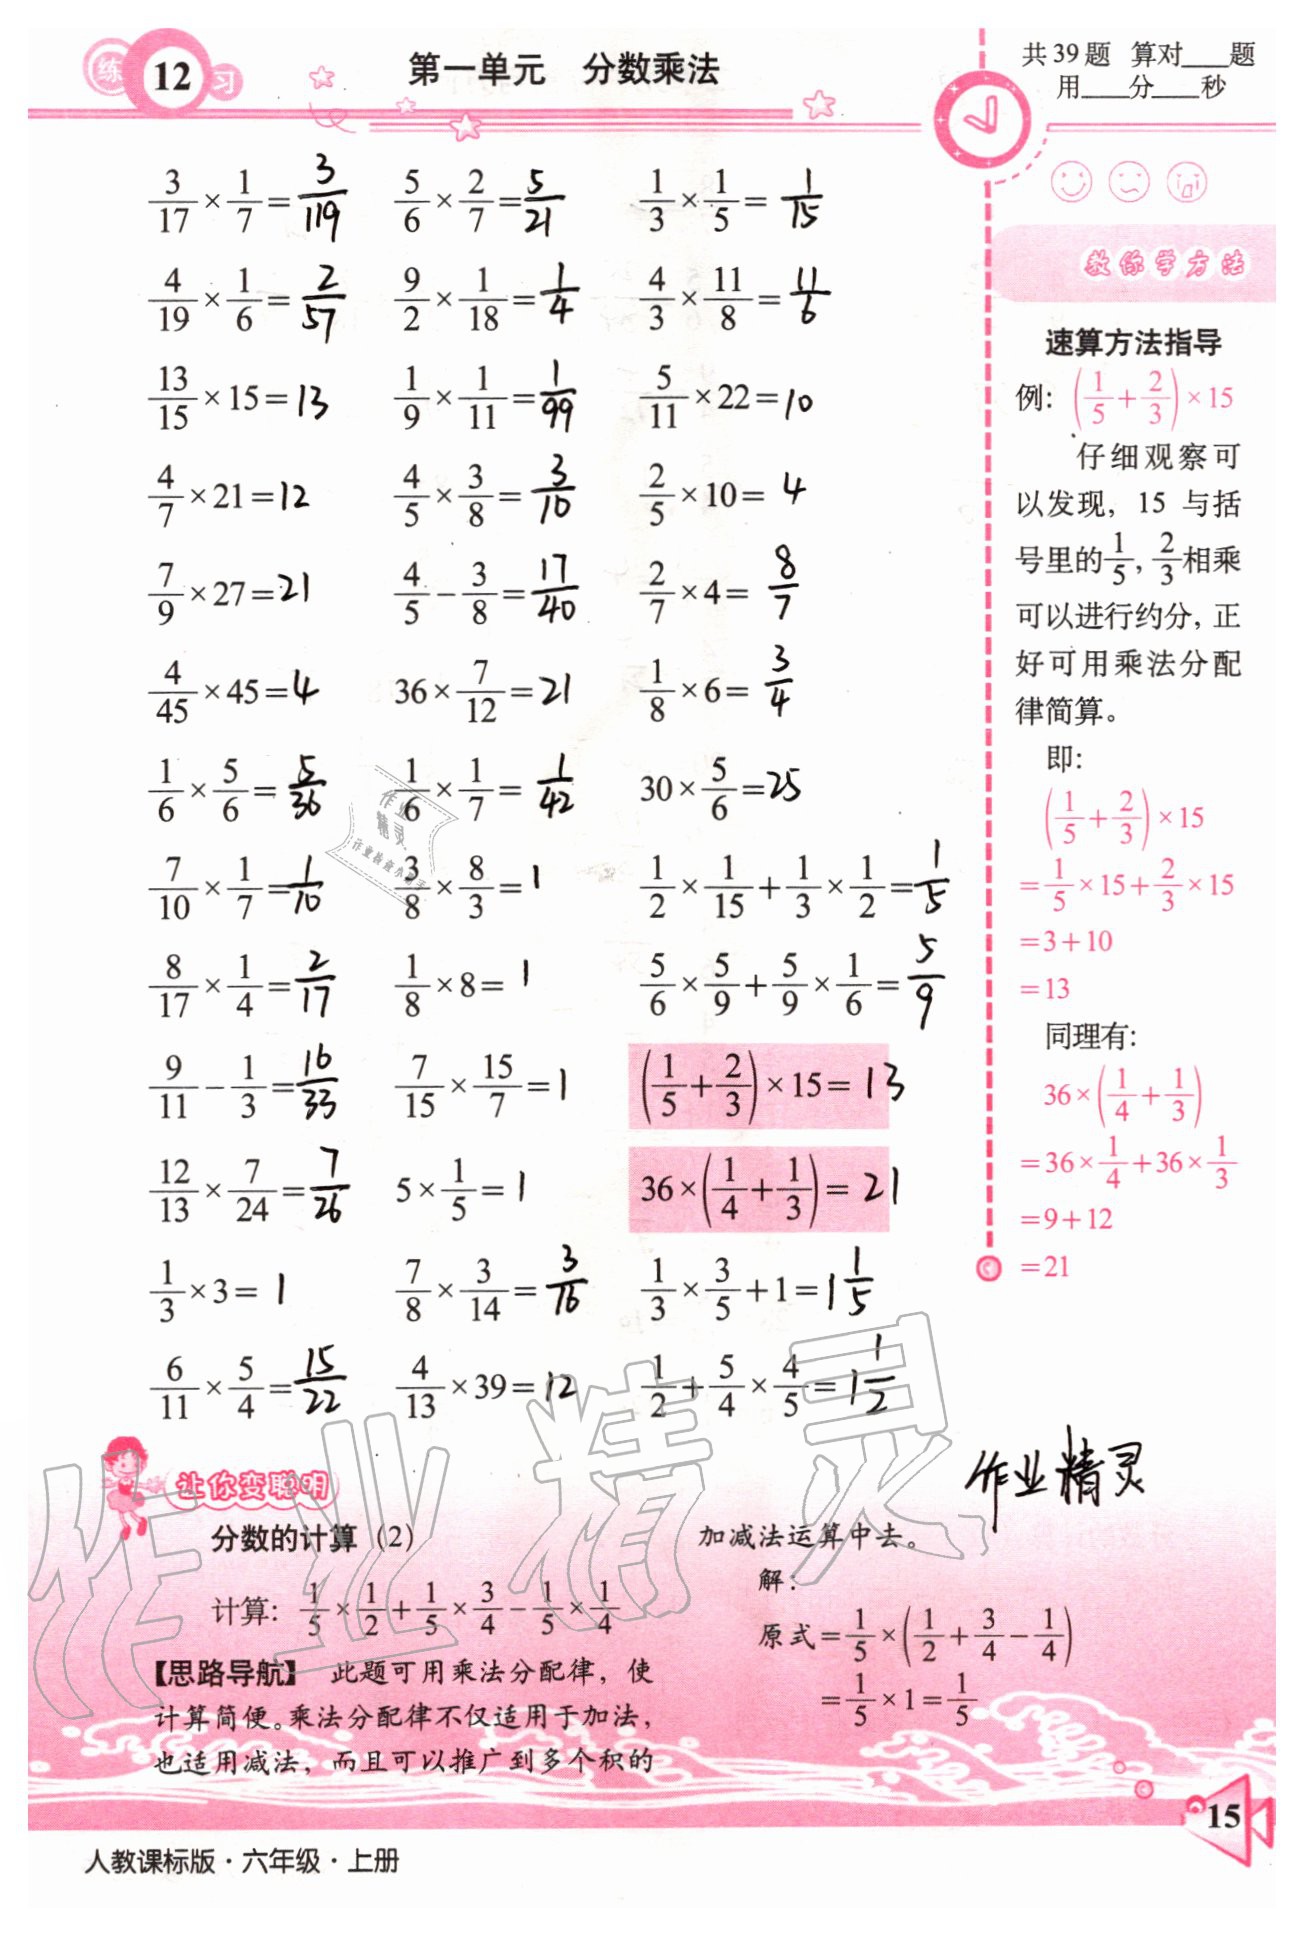 练 12 习
第一单元 分数乘法
共39题 算对____题
用____分____秒
3/17×1/7=3/119 5/6×2/7=5/21 1/3×1/5=1/15
4/19×1/6=2/57 9/2×1/18=1/4 4/3×11/8=11/6
13/15×15=13 1/9×1/11=1/99 5/11×22=10
4/7×21=12 4/5×3/8=3/10 2/5×10=4
7/9×27=21 4/5-3/8=17/40 2/7×4=8/7
4/45×45=4 36×7/12=21 1/8×6=3/4
1/6×5/6=5/36 1/6×1/7=1/42 30×5/6=25
7/10×1/7=1/10 3/8×8/3=1 1/2×1/15+1/3×1/2=1/5
8/17×1/4=2/17 1/8×8=1 5/6×5/9+5/9×1/6=5/9
9/11-1/3=16/33 7/15×15/7=1 (1/5+2/3)×15=13
12/13×7/24=7/26 5×1/5=1 36×(1/4+1/3)=21
1/3×3=1 7/8×3/14=3/16 1/3×3/5+1=1 1/5
6/11×5/4=15/22 4/13×39=12 1/2+5/4×4/5=1 1/2
教你学方法
速算方法指导
例:(1/5+2/3)×15
仔细观察可
以发现, 15 与括
号里的1/5, 2/3相乘
可以进行约分, 正
好可用乘法分配
律简算。
即:
(1/5+2/3)×15
=1/5×15+2/3×15
=3+10
=13
同理有:
36×(1/4+1/3)
=36×1/4+36×1/3
=9+12
=21
作业精灵
作业精灵
作业精灵
让你变聪明
分数的计算 (2)
计算: 1/5×1/2+1/5×3/4-1/5×1/4
【思路导航】 此题可用乘法分配律, 使
计算简便。乘法分配律不仅适用于加法,
也适用减法, 而且可以推广到多个积的
加减法运算中去。
解:
原式=1/5×(1/2+3/4-1/4)
=1/5×1=1/5
15
人教课标版·六年级·上册